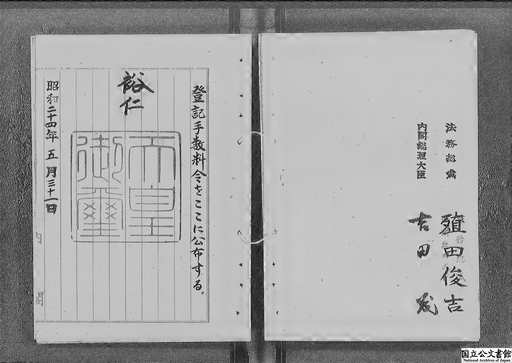 登記手数料令をここに公布する。
裕仁
天皇御璽
昭和二十四年五月三十一日
内閣
法務総裁
殖田俊吉
内閣総理大臣
吉田茂
国立公文書館
National Archives of Japan